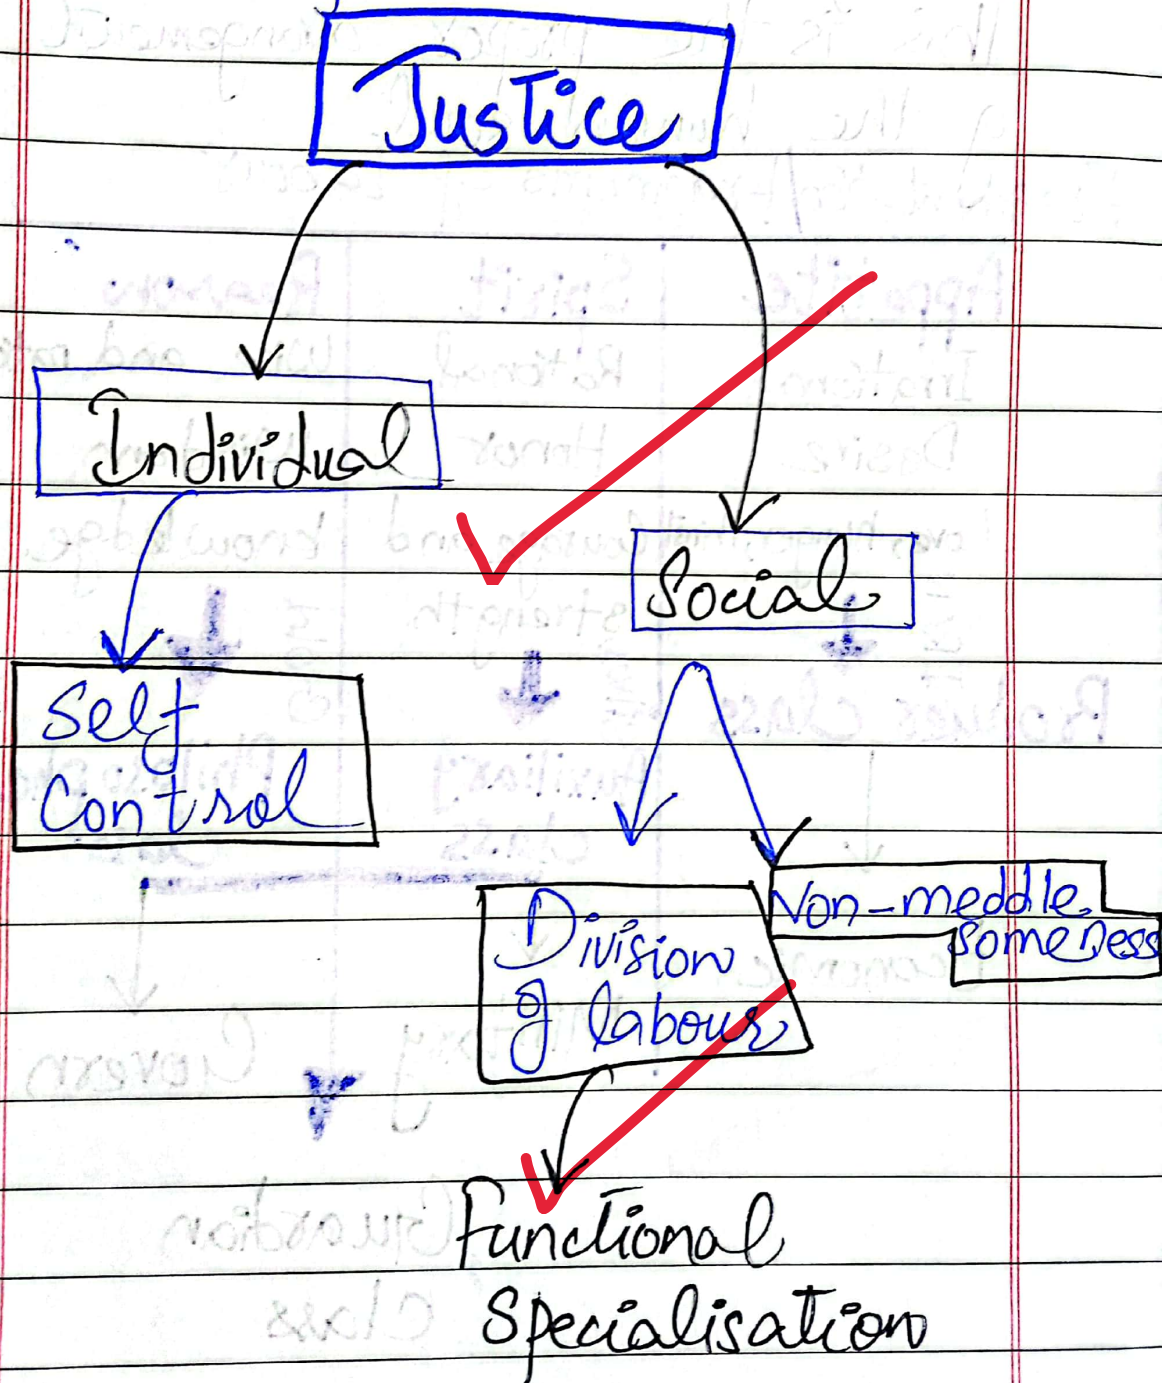 Justice
Individual
Social
Self
Control
Division
of labour
Non-meddle
someness
Functional
Specialisation